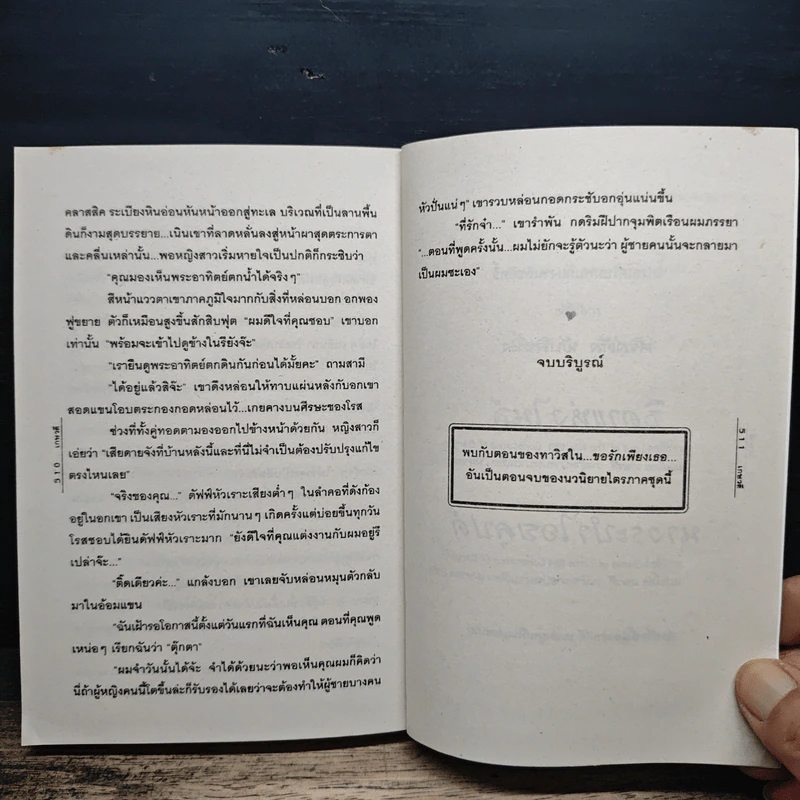 คลาสสิค ระเบียงหินอ่อนหันหน้าออกสู่ทะเล บริเวณที่เป็นลานพื้น
ดินก็งามสุดบรรยาย...เนินเขาที่ลาดหลั่นลงสู่หน้าผาสุดตระการตา
และคลื่นเหล่านั้น...พอหญิงสาวเริ่มหายใจเป็นปกติก็กระซิบว่า
“คุณมองเห็นพระอาทิตย์ตกน้ำได้จริงๆ”
สีหน้าแววตาเขาภาคภูมิใจมากกับสิ่งที่หล่อนบอก อกพอง
ฟูขยาย ตัวก็เหมือนสูงขึ้นสักสิบฟุต “ผมดีใจที่คุณชอบ” เขาบอก
เท่านั้น “พร้อมจะเข้าไปดูข้างในรึยังจ๊ะ”
“เรายืนดูพระอาทิตย์ตกดินกันก่อนได้มั้ยคะ” ถามสามี
“ได้อยู่แล้วสิจ๊ะ” เขาดึงหล่อนให้ทาบแผ่นหลังกับอกเขา
สอดแขนโอบตระกองกอดหล่อนไว้...เกยคางบนศีรษะของโรส
ช่วงที่ทั้งคู่ทอดตามองออกไปข้างหน้าด้วยกัน หญิงสาวก็
เอ่ยว่า “เสียดายจังที่บ้านหลังนี้และที่นี่ไม่จำเป็นต้องปรับปรุงแก้ไข
ตรงไหนเลย”
“จริงของคุณ...” ดัฟฟ์หัวเราะเสียงต่ำๆ ในลำคอที่ดังก้อง
อยู่ในอกเขา เป็นเสียงหัวเราะที่มักนานๆ เกิดครั้งแต่บ่อยขึ้นทุกวัน
โรสชอบได้ยินดัฟฟ์หัวเราะมาก “ยังดีใจที่คุณแต่งงานกับผมอยู่รึ
เปล่าจ๊ะ...”
“ติ๊ดเดียวค่ะ...” แกล้งบอก เขาเลยจับหล่อนหมุนตัวกลับ
มาในอ้อมแขน
“ฉันเฝ้ารอโอกาสนี้ตั้งแต่วันแรกที่ฉันเห็นคุณ ตอนที่คุณพูด
เหน่อๆ เรียกฉันว่า “ตุ๊กตา”
“ผมจำวันนั้นได้จ้ะ จำได้ด้วยนะว่าพอเห็นคุณผมก็คิดว่า
นี่ถ้าผู้หญิงคนนี้โตขึ้นล่ะก็รับรองได้เลยว่าจะต้องทำให้ผู้ชายบางคน
510 เกษวดี
หัวปั่นแน่ๆ” เขารวบหล่อนกอดกระชับอกอุ่นแน่นขึ้น
“ที่รักจ๋า...” เขารำพัน กดริมฝีปากจุมพิตเรือนผมภรรยา
“...ตอนที่พูดครั้งนั้น...ผมไม่ยักจะรู้ตัวนะว่า ผู้ชายคนนั้นจะกลายมา
เป็นผมซะเอง”
จบบริบูรณ์
พบกับตอนของทาวิสใน...ขอรักเพียงเธอ...
อันเป็นตอนจบของนวนิยายไตรภาคชุดนี้
511 เกษวดี